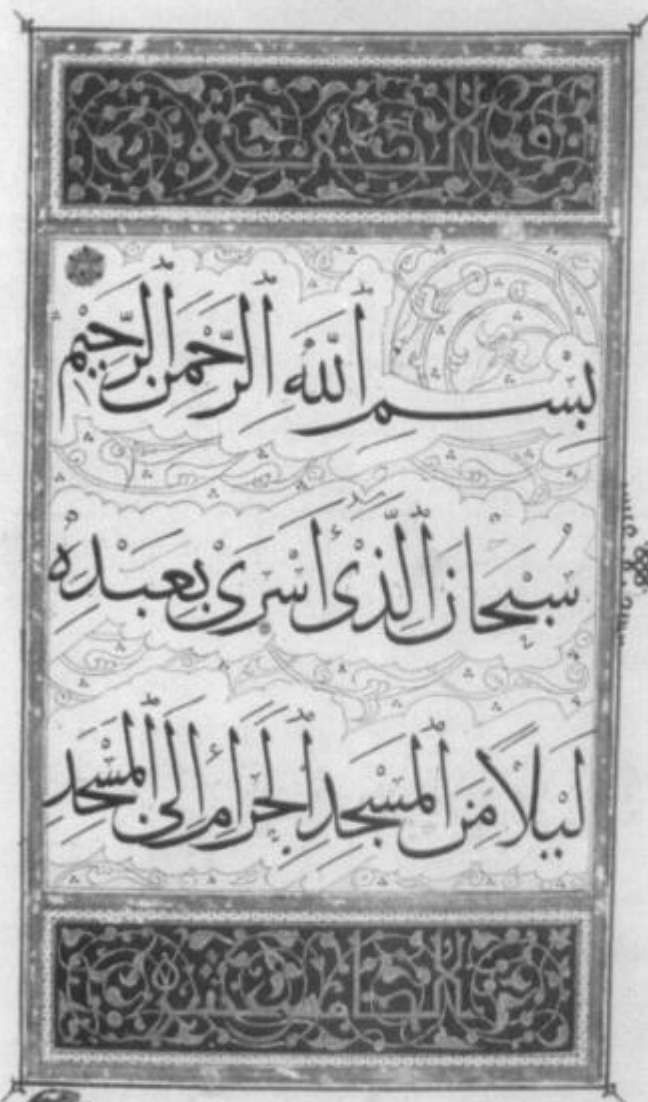 بِسْمِ ٱللَّهِ ٱلرَّحْمَنِ ٱلرَّحِيمِ
سُبْحَانَ ٱلَّذِىٓ أَسْرَىٰ بِعَبْدِهِ
لَيْلًا مِنَ ٱلْمَسْجِدِ ٱلْحَرَامِ إِلَى ٱلْمَسْجِدِ